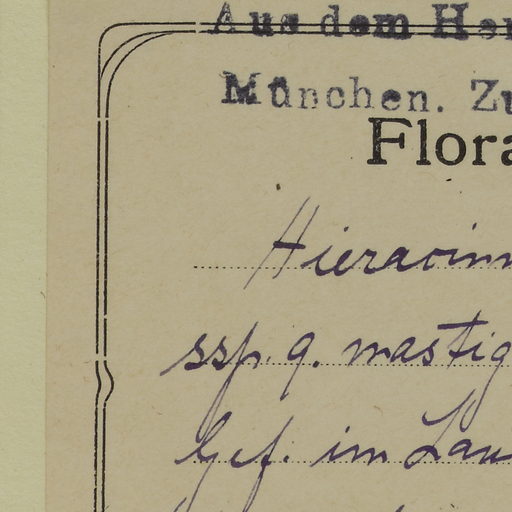 Aus dem Her
München. Zu
Flora
Hieracium
ssp. g. mastig
Gef. im Lau